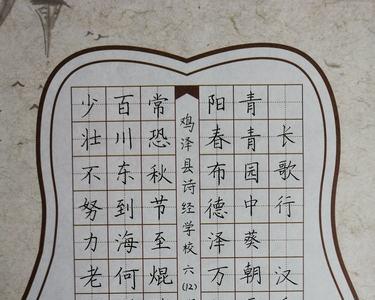 长歌行 汉
青青园中葵朝
阳春布德泽万
鸡泽县诗经学校 六(12)
常恐秋节至焜
百川东到海何
少壮不努力老